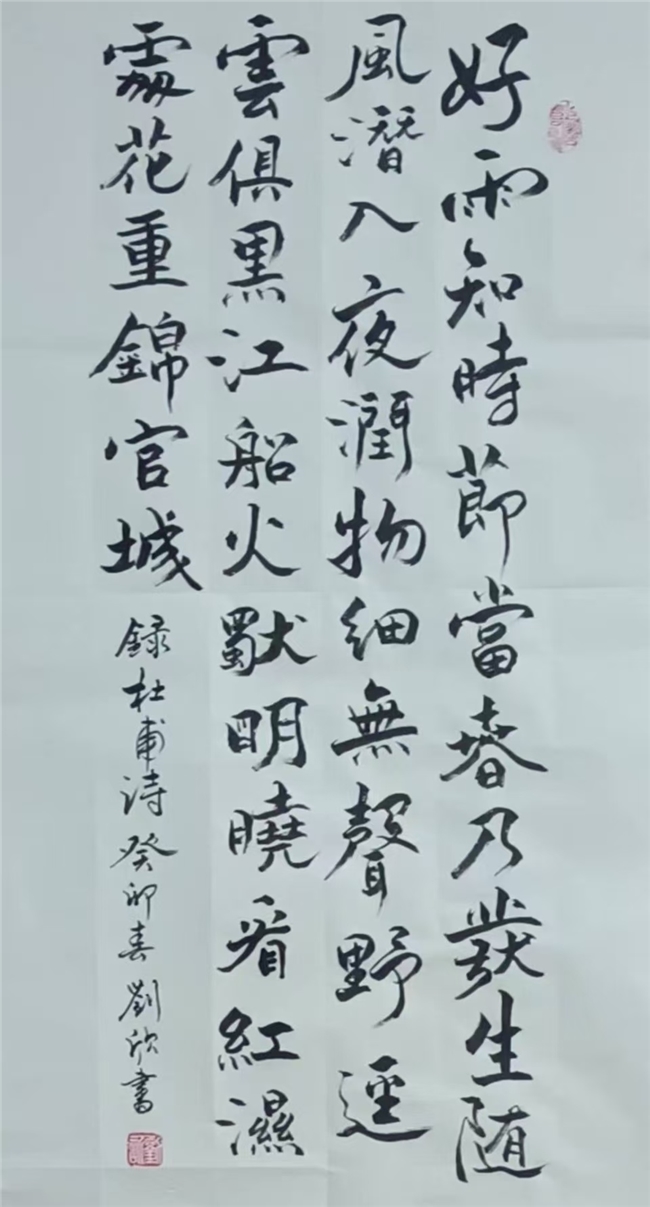 好雨知時節當春乃發生随
風潛入夜潤物細無聲野逕
雲俱黑江船火獨明曉看紅濕
處花重錦官城
録杜甫诗癸卯春劉欣書